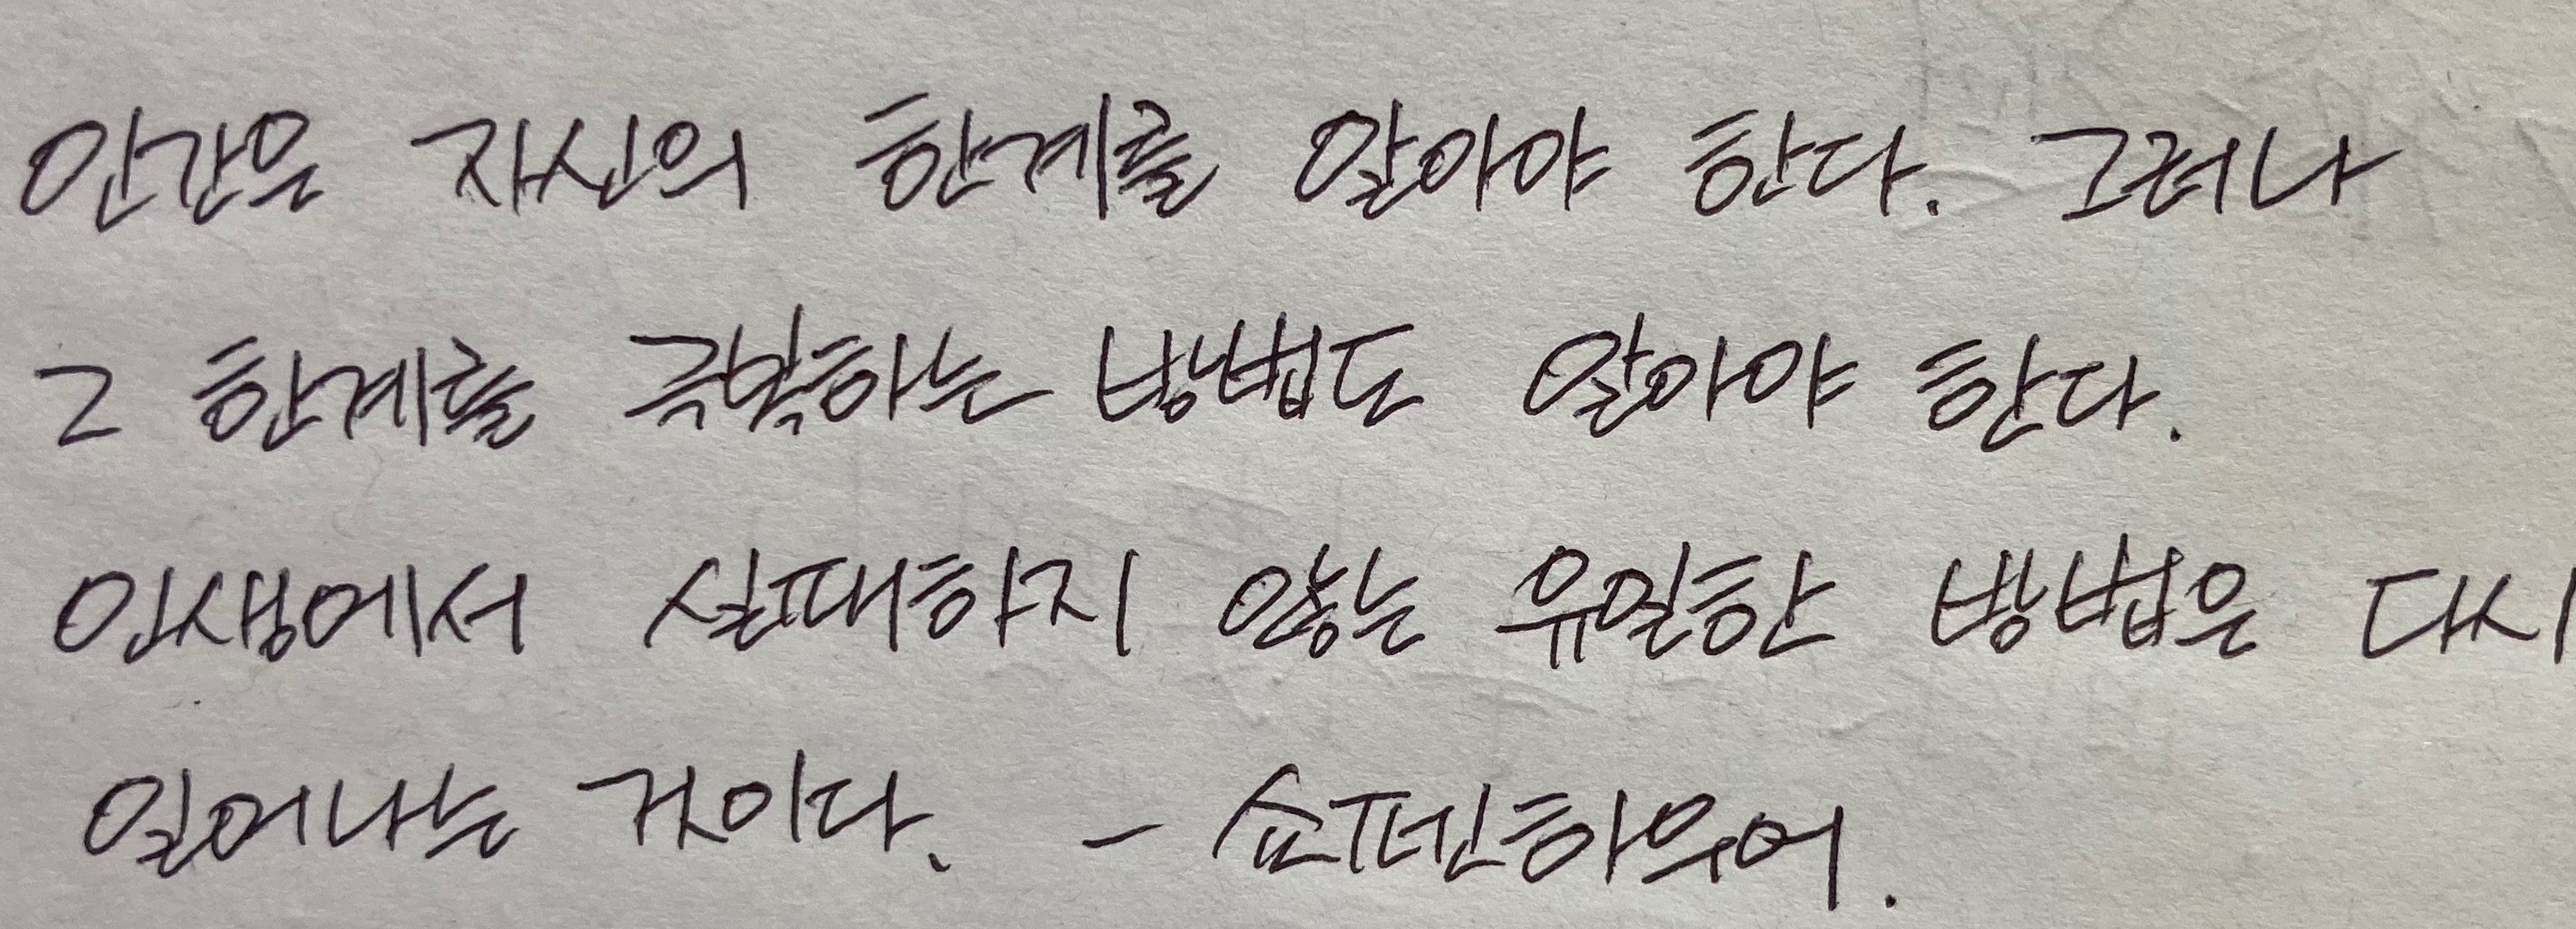 인간은 자신의 한계를 알아야 한다. 그러나
그 한계를 극복하는 방법도 알아야 한다.
인생에서 실패하지 않는 유일한 방법은 다시
일어나는 것이다. - 쇼펜하우어.